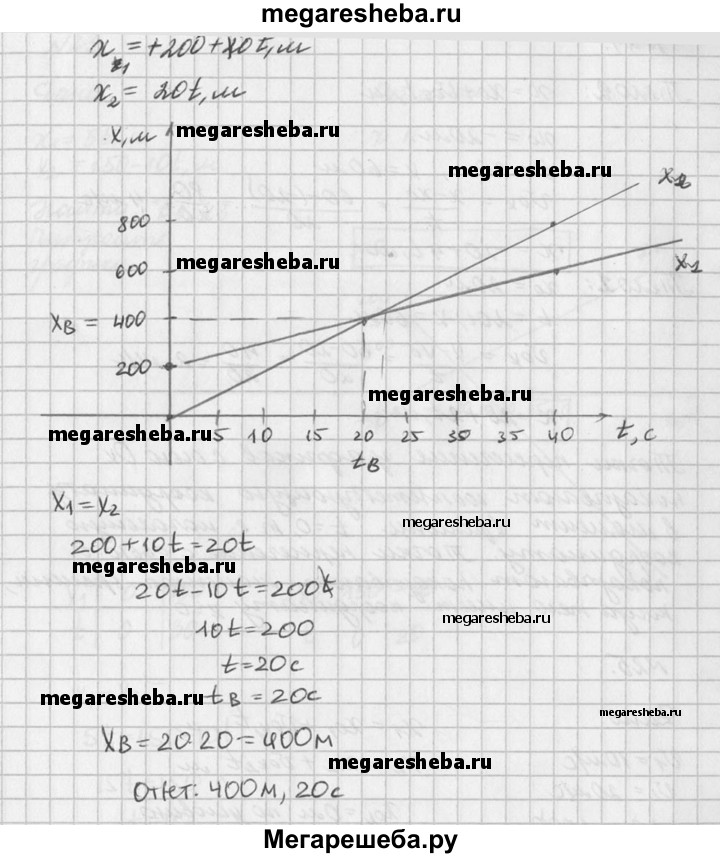 megaresheba.ru
x₁ = +200+10t, м
x₂ = 20t, м
x, м
megaresheba.ru
megaresheba.ru
x₂
800
megaresheba.ru
600
x₁
xв = 400
200
megaresheba.ru
megaresheba.ru
5 10 15 20 25 30 35 40 t, с
tв
x₁ = x₂
megaresheba.ru
200+10t=20t
megaresheba.ru
20t-10t=200
megaresheba.ru
10t=200
t=20с
megaresheba.ru
tв = 20с
megaresheba.ru
xв = 20·20=400м
megaresheba.ru
Ответ: 400м, 20с
Мегарешеба.ру